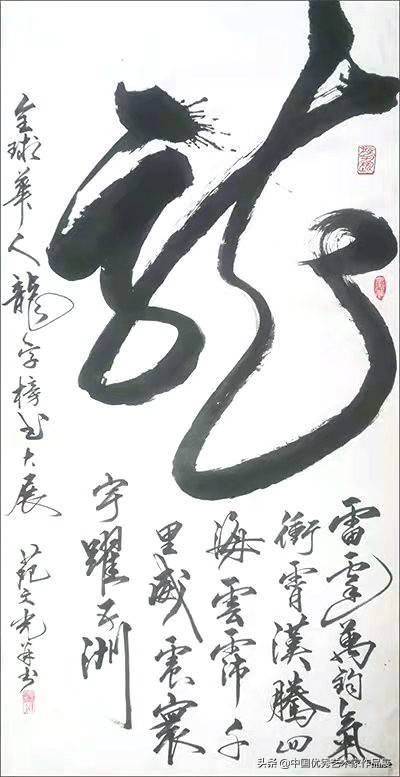 龍
雷霆萬鈞氣
衝霄漢騰四
海雲霈千
里威震寰
宇躍五洲
全球華人龍字榜书大展
范文光并书
头条 @中国优秀艺术家作品展